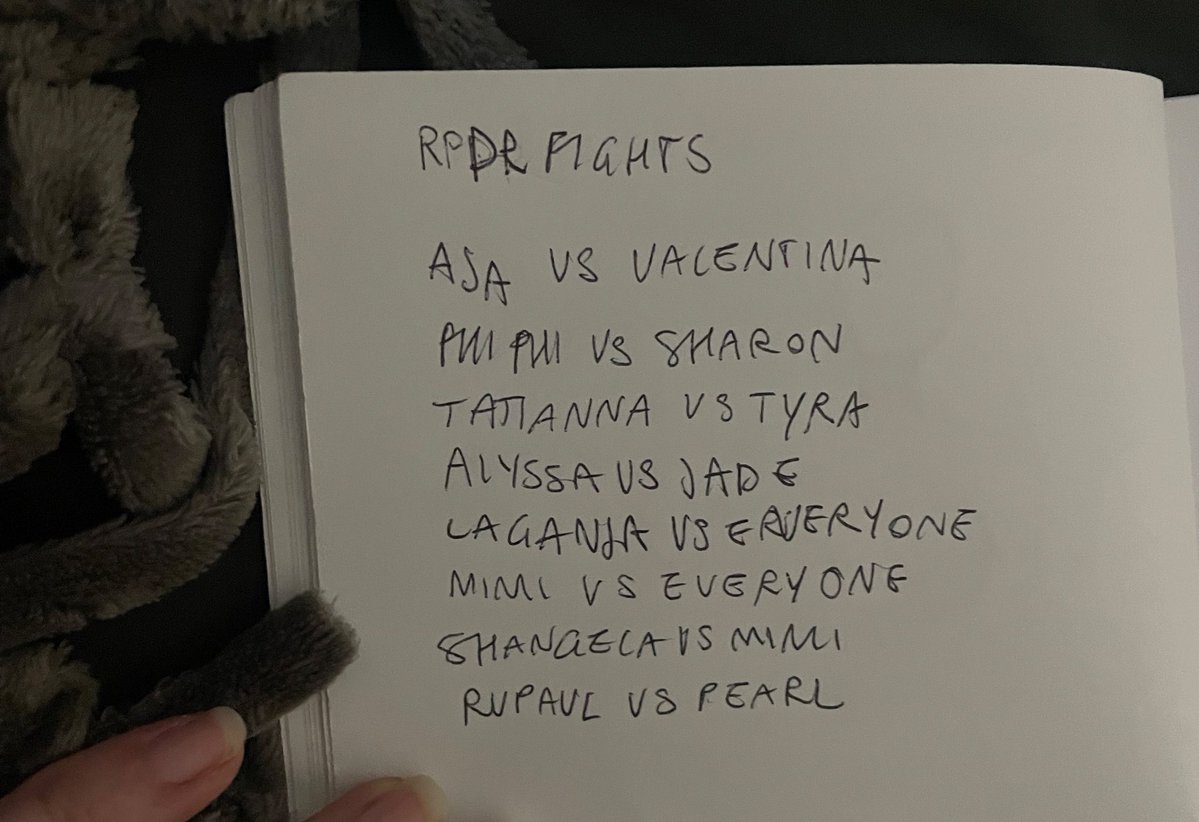 RPDR FIGHTS
ASA VS VALENTINA
PHI PHI VS SHARON
TATIANNA VS TYRA
ALYSSA VS JADE
LAGANJA VS ERVERYONE
MIMI VS EVERYONE
SHANGELA VS MIMI
RUPAUL VS PEARL